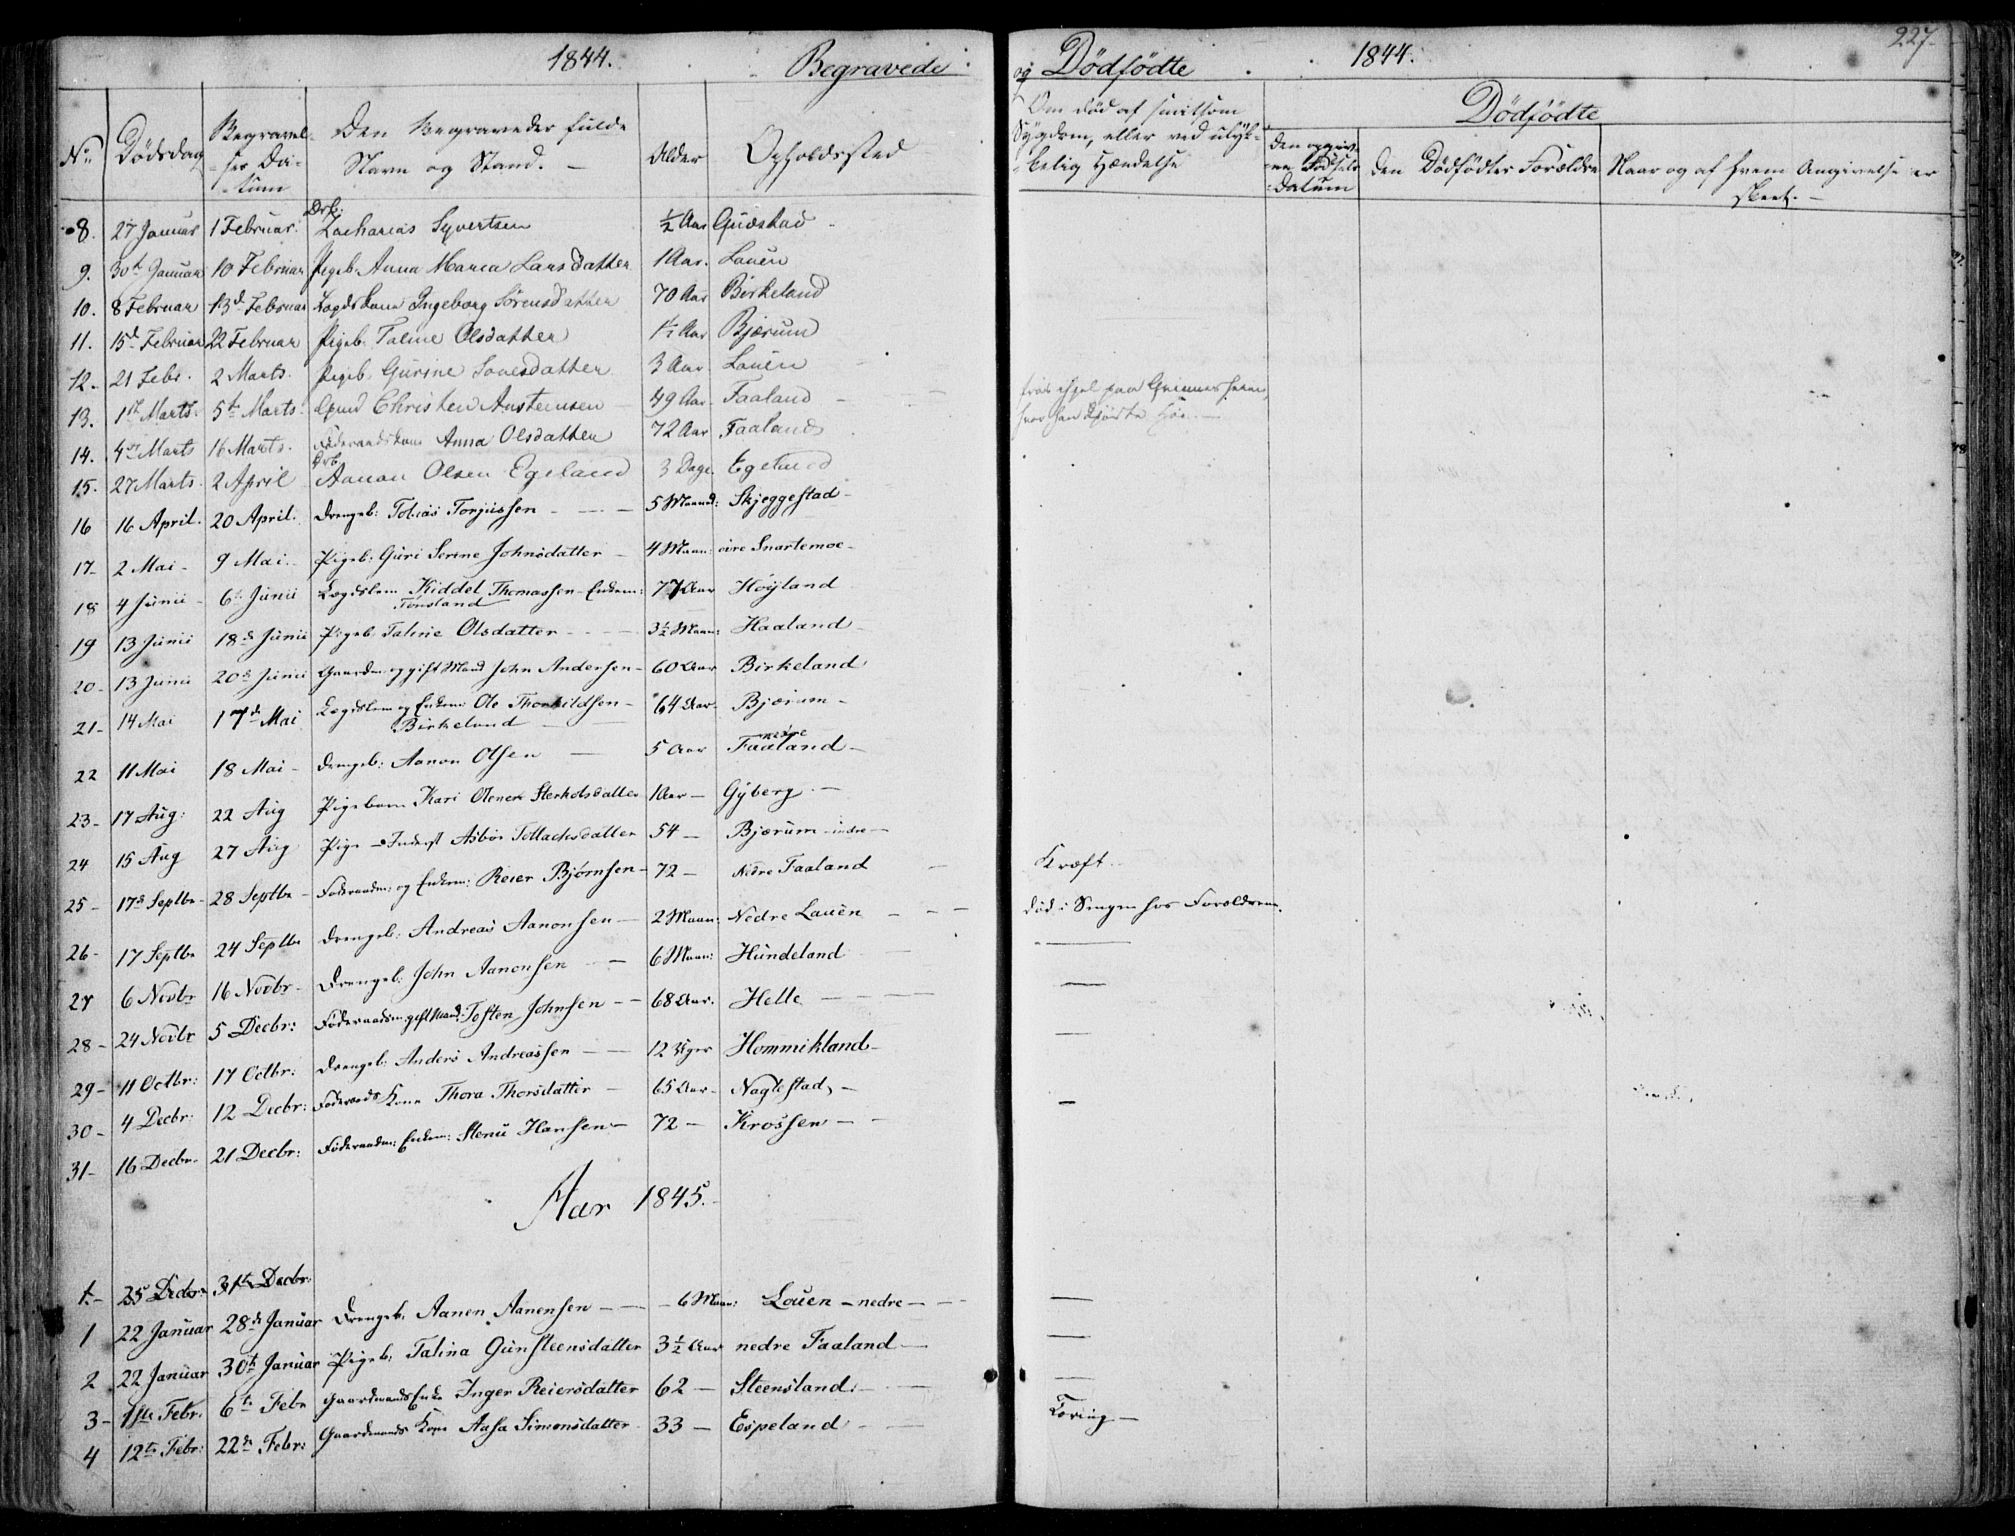 1844. Begravede og Dödfödte 1844. 227.
No. Dödsdag Begravelses Datum Den Begravedes fulde Navn og Stand. Alder Opholdssted Om död af smitsom Sygdom, eller ved ulykkelig Hændelse Dödfödte
Den opgivne Födsels Datum Den Dödfödtes Forældre Naar og af hvem Angivelse er skeet. -
8. 27 Januar 1 Februar. Drb: Zacharias Syvertsen ½ Aar Gudestad
9. 30te Januar 10 Februar Pigeb. Anna Maria Larsdatter 1 Aar. Lauen
10. 8 Februar 13de Februar Lægdskone Ingeborg Sörensdatter 70 Aar Birkeland
11. 15de Februar 22 Februar Pigeb. Taline Olsdatter Aar Bjærum
12. 21 Febr. 2 Marts. Pigeb. Gurine 3 Aar Lauen
13. 1ste Marts. 5te Marts. Christen Austensen 49 Aar. Faaland
14. 4de Marts 16 Marts. Föderaadskone Anna Olsdatter 72 Aar Faaland
15. 27 Marts. 2 April Drb. Aanon Olsen Egeland 3 Dage. Egeland
16 16 April. 20 April. Drengeb: Tobias Torjussen 5 Maaned: Skjeggestad
17- 2 Mai - 9 Mai.- Pigeb: Guri Serine Johnsdatter - 4 Maan: övre Snartemoe-
18 4 Junii - 6te Junii Lægdslem Kiddel Thomassen Enkem: 77 Aar Höÿland
Tönsland
19 13 Junii 18de Junii Pigeb: Taline Olsdatter - - 3½ Maan: Haaland
20- 13 Junii 20de Junii Gaardm: og gift Mand John Andersen - 60 Aar Birkeland
21- 14 Mai 17de Mai Lægdslem og Enkem: Ole Thorkildsen - 64 Aar. Bjærum -
Birkeland
22 11 Mai 18 Mai - Drengeb: Aanon Olsen - 5 Aar nedre Faaland -
23- 17 Aug: 22 Aug Pigebarn Kari Olene Sterkolsdatter 1 Aar - Gÿberg. -
24 15 Aug 27 Aug Pige - Inderst Asbor Tollachsdatter 54 - Bjærum - indre -
25- 17de Septbr- 28 Septbr - Föderaadm: og Enkem: Reier Björnsen - 72 - Nedre Faaland Kræft.
26- 17 Septbr 24 Septbr Drengeb: Andreas Aanonsen - 2 Maan: Nedre Lauen - - död i Sengen hos Foreldrene.
27 6 Novbr 16 Novbr- Drengeb: John Aanonsen - 6 Maan: Hundeland
28- 24 Novbr 5 Decbr: Föderaadsm: gift Mand: Tosten Johnsen - - 68 Aar. Helle -
29- 11 Octbr: 17 Octbr: Drengeb: Anders Andreassen - - 12 Uger Hommikland-
30- 4 Decbr. 12 Decbr: Föderaads Kone Thora Thorsdatter - 65 Aar- Naglestad -
31- 16 Decbr. 21 Decbr: Föderaadm: Enkem: Stenu Hansen - 72 - Krossen -
Aar 1845.
1.- 25 Decbr- 31te Decbr:
1 22 Januar 28de Januar Drengeb. Aanen Aanensen - - 6 Maan: Lauen - nedre -
2 22 Januar 30te Januar Pigeb: Talina Gunsteensdatter 3½ Aar nedre Faaland -
3- 1ste Febr. 6te Febr Gaardmands Enke Inger Reiersdatter 62 - Steensland. -
4 12te Febr: 22de Febr: Gaardmands Kone Aasa Simonsdatter 33 - Espeland -